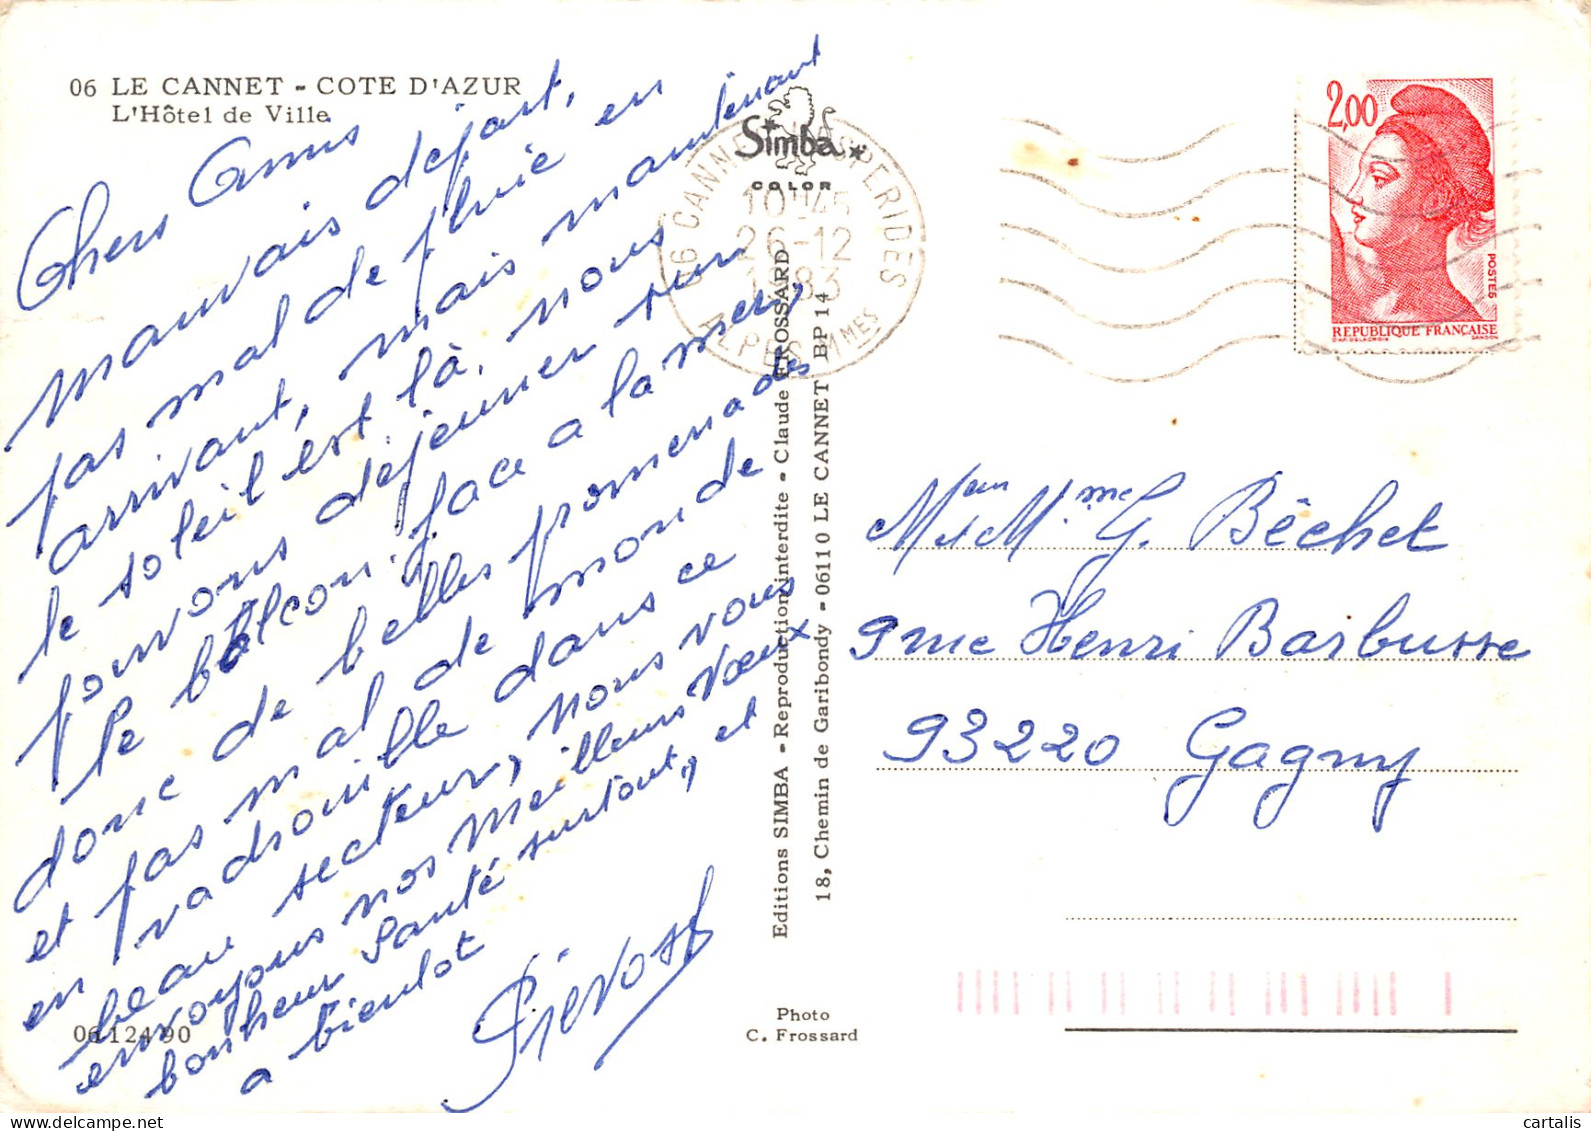 06 LE CANNET - COTE D'AZUR
L'Hôtel de Ville
Chers Amis
Mauvais départ,
pas mal de pluie en
arrivant, mais maintenant
le soleil est là, nous
pouvons déjeuner sur
le balcon face a la mer,
donc de belles promenades
et pas mal de monde
en vadrouille dans ce
beau secteur, nous vous
envoyons nos meilleurs Vœux
bonheur Santé surtout, et
a bientot
Prévost
06 124 90
Simba
COLOR
06 CANNES HESPERIDES
10H45
26-12
1983
ALPES MMES
Editions SIMBA - Reproduction interdite - Claude FROSSARD
18, Chemin de Garibondy - 06110 LE CANNET BP 14
Photo
C. Frossard
2,00
POSTES
REPUBLIQUE FRANÇAISE
D'AP. DELACROIX GANDON
et Mme G. Béchet
9 rue Henri Barbusse
93220 Gagny
cartalis